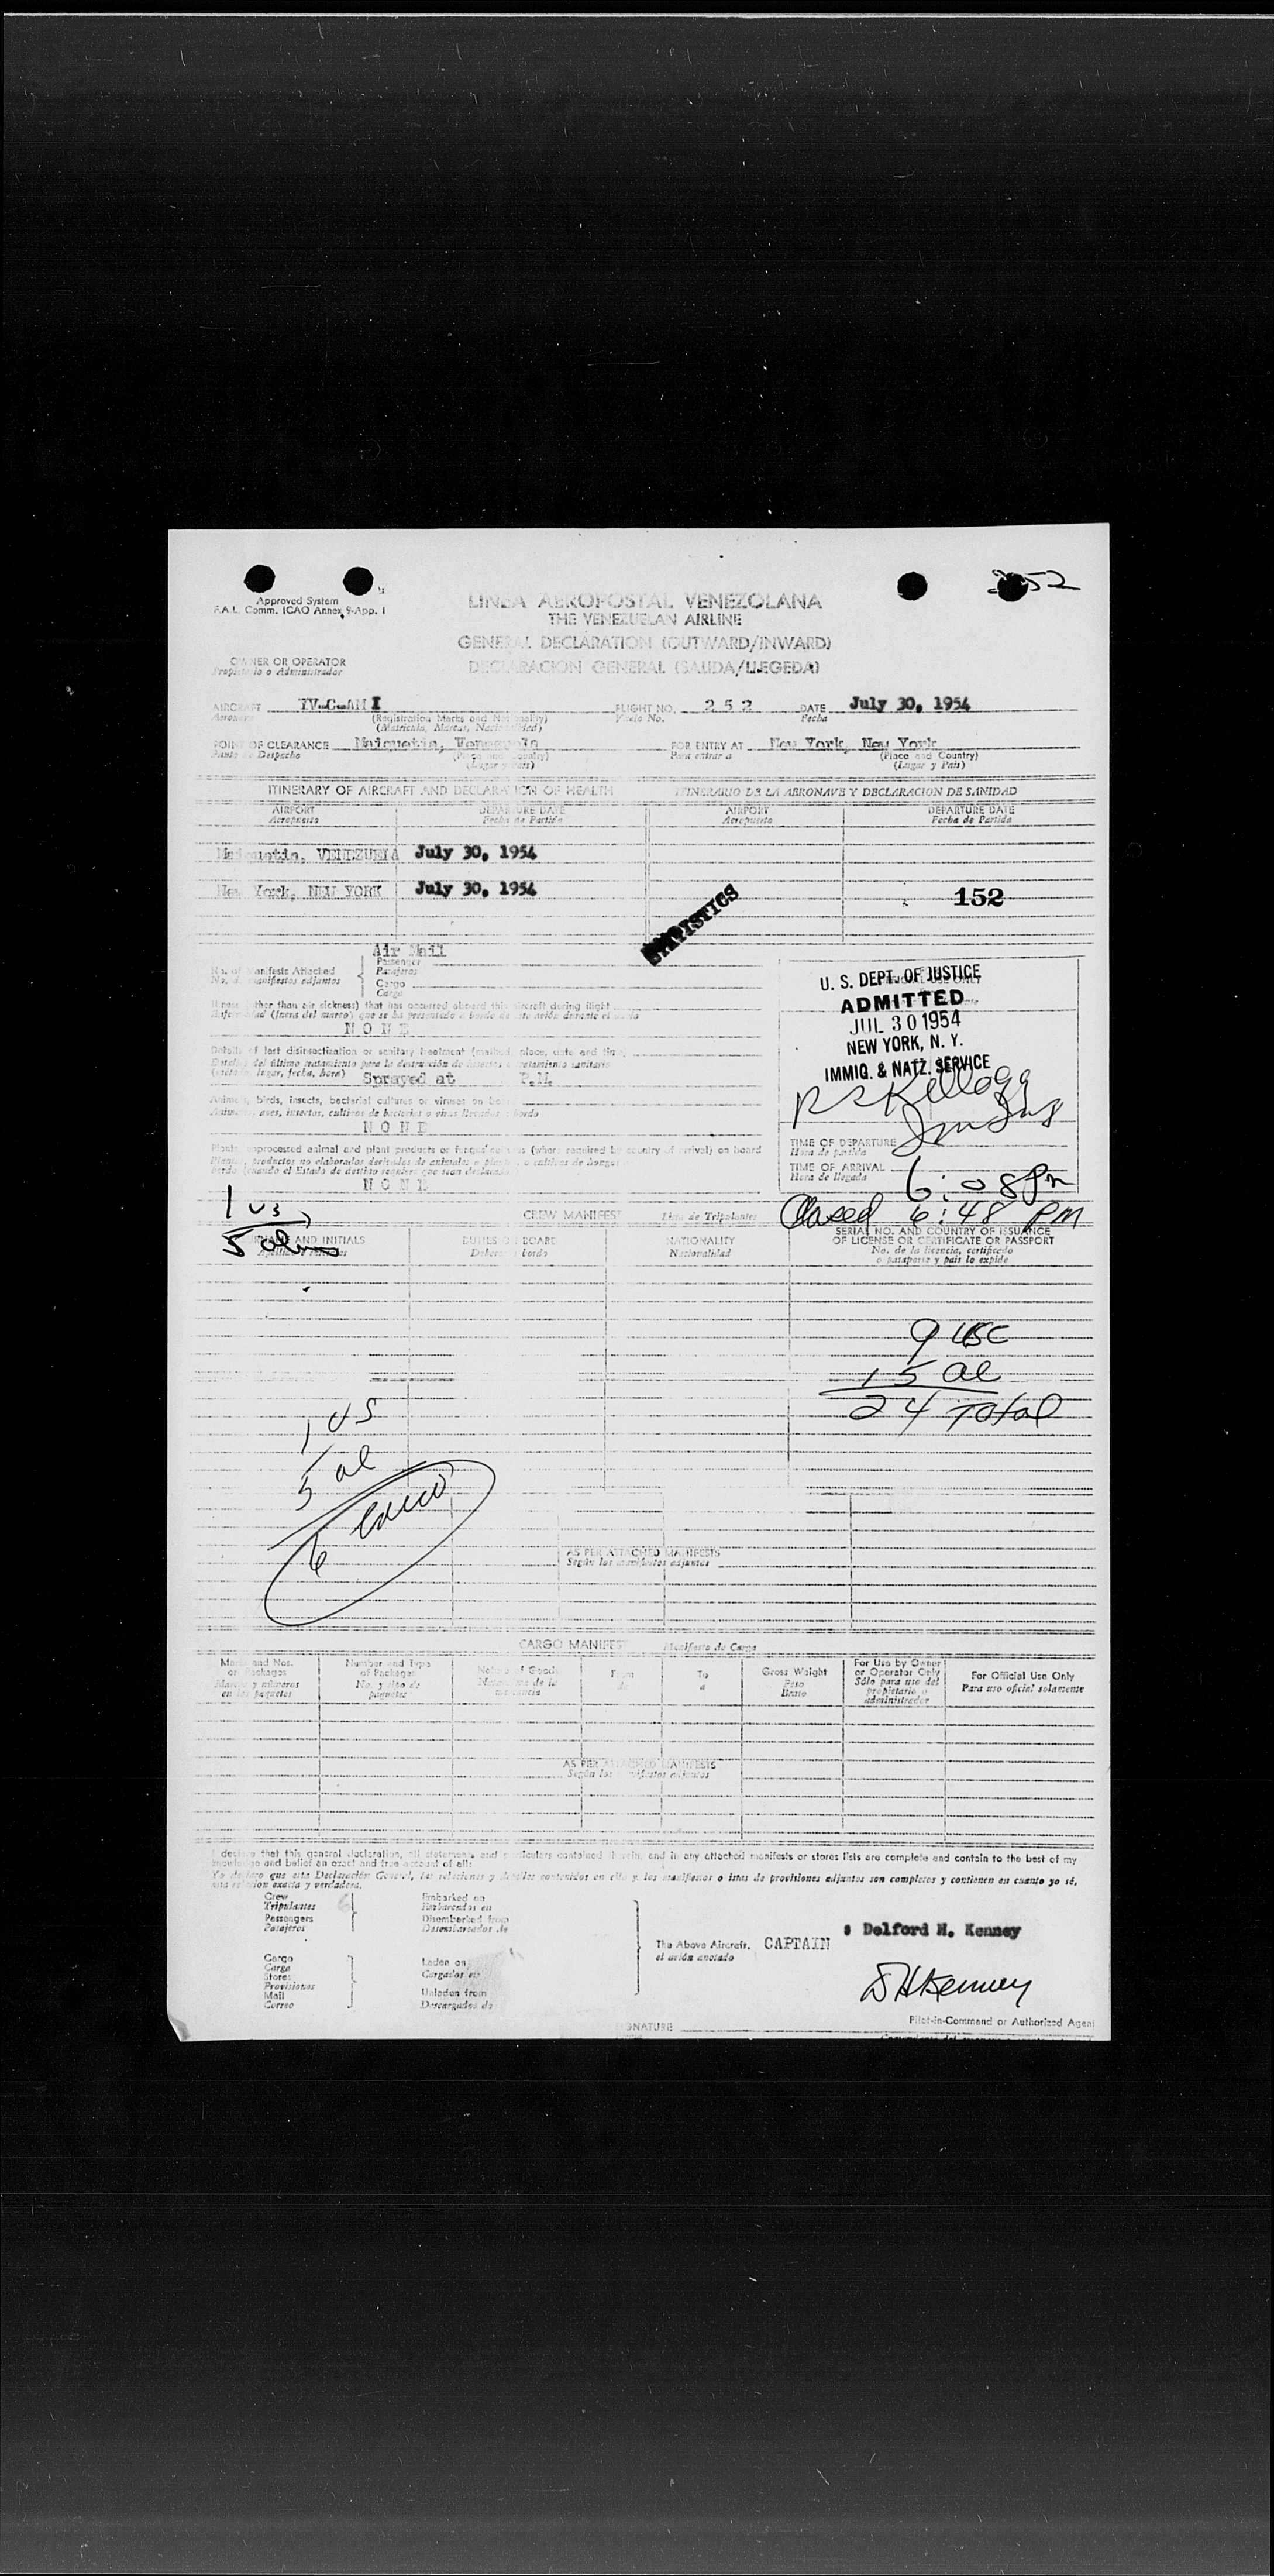 252
Approved System
F.A.L. Comm. ICAO Annex 9-App. 1
LINEA AEROPOSTAL VENEZOLANA
THE VENEZUELAN AIRLINE
GENERAL DECLARATION (OUTWARD/INWARD)
DECLARACION GENERAL (SALIDA/LLEGEDA)
OWNER OR OPERATOR
Propietario o Administrador
AIRCRAFT FLIGHT NO. 252 DATE July 30, 1954
Aeronave Vuelo No. Fecha
(Registration Marks and Nationality)
POINT OF CLEARANCE Maiquetia, Venezuela FOR ENTRY AT New York, New York
Punto de Despacho (Place and Country) Para entrar a (Place and Country)
(Lugar y País) (Lugar y País)
ITINERARY OF AIRCRAFT AND DECLARATION OF HEALTH ITINERARIO DE LA AERONAVE Y DECLARACION DE SANIDAD
AIRPORT DEPARTURE DATE AIRPORT DEPARTURE DATE
Aeropuerto Fecha de Partida Aeropuerto Fecha de Partida
Maiquetia, VENEZUELA July 30, 1954
New York, NEW YORK July 30, 1954
152
STATISTICS
Air Mail
No. of Manifests Attached Passenger
No. de manifiestos adjuntos Pasajeros
Cargo
Carga
Illness (other than air sickness) that has occurred aboard this aircraft during flight
NONE
Details of last disinsectization or sanitary treatment (method, place, date and time)
Sprayed at P.M.
Animals, birds, insects, bacterial cultures or viruses on board
NONE
Plants, unprocessed animal and plant products or fungus cultures (where required by country of arrival) on board
NONE
U. S. DEPT. OF JUSTICE
ADMITTED
JUL 30 1954
NEW YORK, N. Y.
IMMIG. & NATZ. SERVICE
R S Kellogg
TIME OF DEPARTURE
Hora de partida
TIME OF ARRIVAL 6:08 Pm
Hora de llegada
Closed 6:48 PM
1 US
5 aliens
CREW MANIFEST Lista de Tripulantes
NAME AND INITIALS DUTIES ON BOARD NATIONALITY SERIAL NO. AND COUNTRY OF ISSUANCE
OF LICENSE OR CERTIFICATE OR PASSPORT
Nacionalidad No. de la licencia, certificado
o pasaporte y país lo expide
9 USC
15 al
24 Total
1 US
5 al
6 crew
AS PER ATTACHED MANIFESTS
Según los manifiestos adjuntos
CARGO MANIFEST Manifiesto de Carga
Marks and Nos. Number and Type Nature of Goods From To Gross Weight For Use by Owner For Official Use Only
or Packages of Packages de a Peso or Operator Only Para uso oficial solamente
Marcas y números No. y tipo de Bruto Sólo para uso del
en los paquetes paquetes propietario o
administrador
AS PER ATTACHED MANIFESTS
Según los manifiestos adjuntos
I declare that this general declaration, all statements and particulars contained therein, and in any attached manifests or stores lists are complete and contain to the best of my
knowledge and belief an exact and true account of all:
Yo declaro que esta Declaración General, las relaciones y detalles contenidos en ella y los manifiestos o listas de provisiones adjuntos son completos y contienen en cuanto yo sé,
una relación exacta y verdadera.
Crew 6 Embarked on
Tripulantes Embarcados en
Passengers Disembarked from
Pasajeros Desembarcados de
The Above Aircraft. CAPTAIN : Delford H. Kenney
el avión anotado
Cargo Laden on
Carga Cargados en
Stores
Provisiones
Mail Unladen from
Correo Descargados de
D H Kenney
SIGNATURE Pilot-in-Command or Authorized Agent